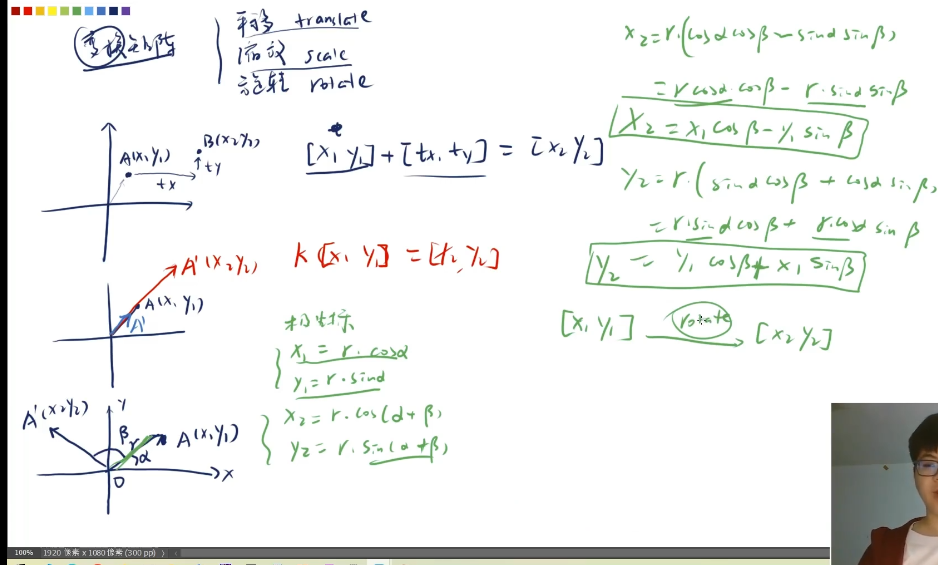 变换矩阵
平移 translate
缩放 scale
旋转 rotate
A(x₁y₁)
B(x₂y₂)
tx
ty
[x₁ y₁] + [tx, ty] = [x₂ y₂]
A'(x₂y₂)
A(x₁ y₁)
A'
k[x₁ y₁] = [x₂ y₂]
极坐标
x₁ = r·cosα
y₁ = r·sinα
x₂ = r·cos(α+β)
y₂ = r·sin(α+β)
A'(x₂y₂)
Y
β
r
α
A(x₁y₁)
O
X
x₂ = r·(cosα cosβ - sinα sinβ)
= r cosα·cosβ - r·sinα sinβ
x₂ = x₁ cosβ - y₁ sinβ
y₂ = r·(sinα cosβ + cosα sinβ)
= r·sinα cosβ + r·cosα sinβ
y₂ = y₁ cosβ + x₁ sinβ
[x₁ y₁] rotate [x₂ y₂]
100% 1920 像素 x 1080 像素 (300 ppi)